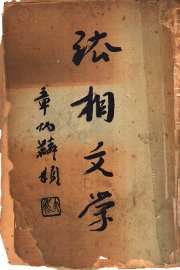 法相文学
章炳麟題